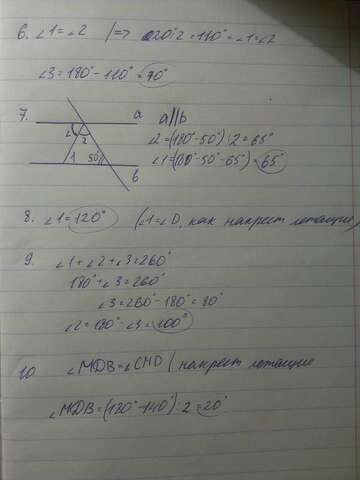 6. ∠1=∠2 |=> 220°:2=110°=∠1=∠2
∠3=180°-110°=70°
7. a a||b
∠ 2 ∠2=(180°-50°):2=65°
1 50° ∠1=(180°-50°-65°)=65°
b
8. ∠1=120° (∠1=∠D, как накрест лежащие)
9. ∠1+∠2+∠3=260°
180°+∠3=260°
∠3=260°-180°=80°
∠2=180°-∠3=100°
10 ∠MDB=∠CMD | накрест лежащие
∠MDB=(180°-140°):2=20°